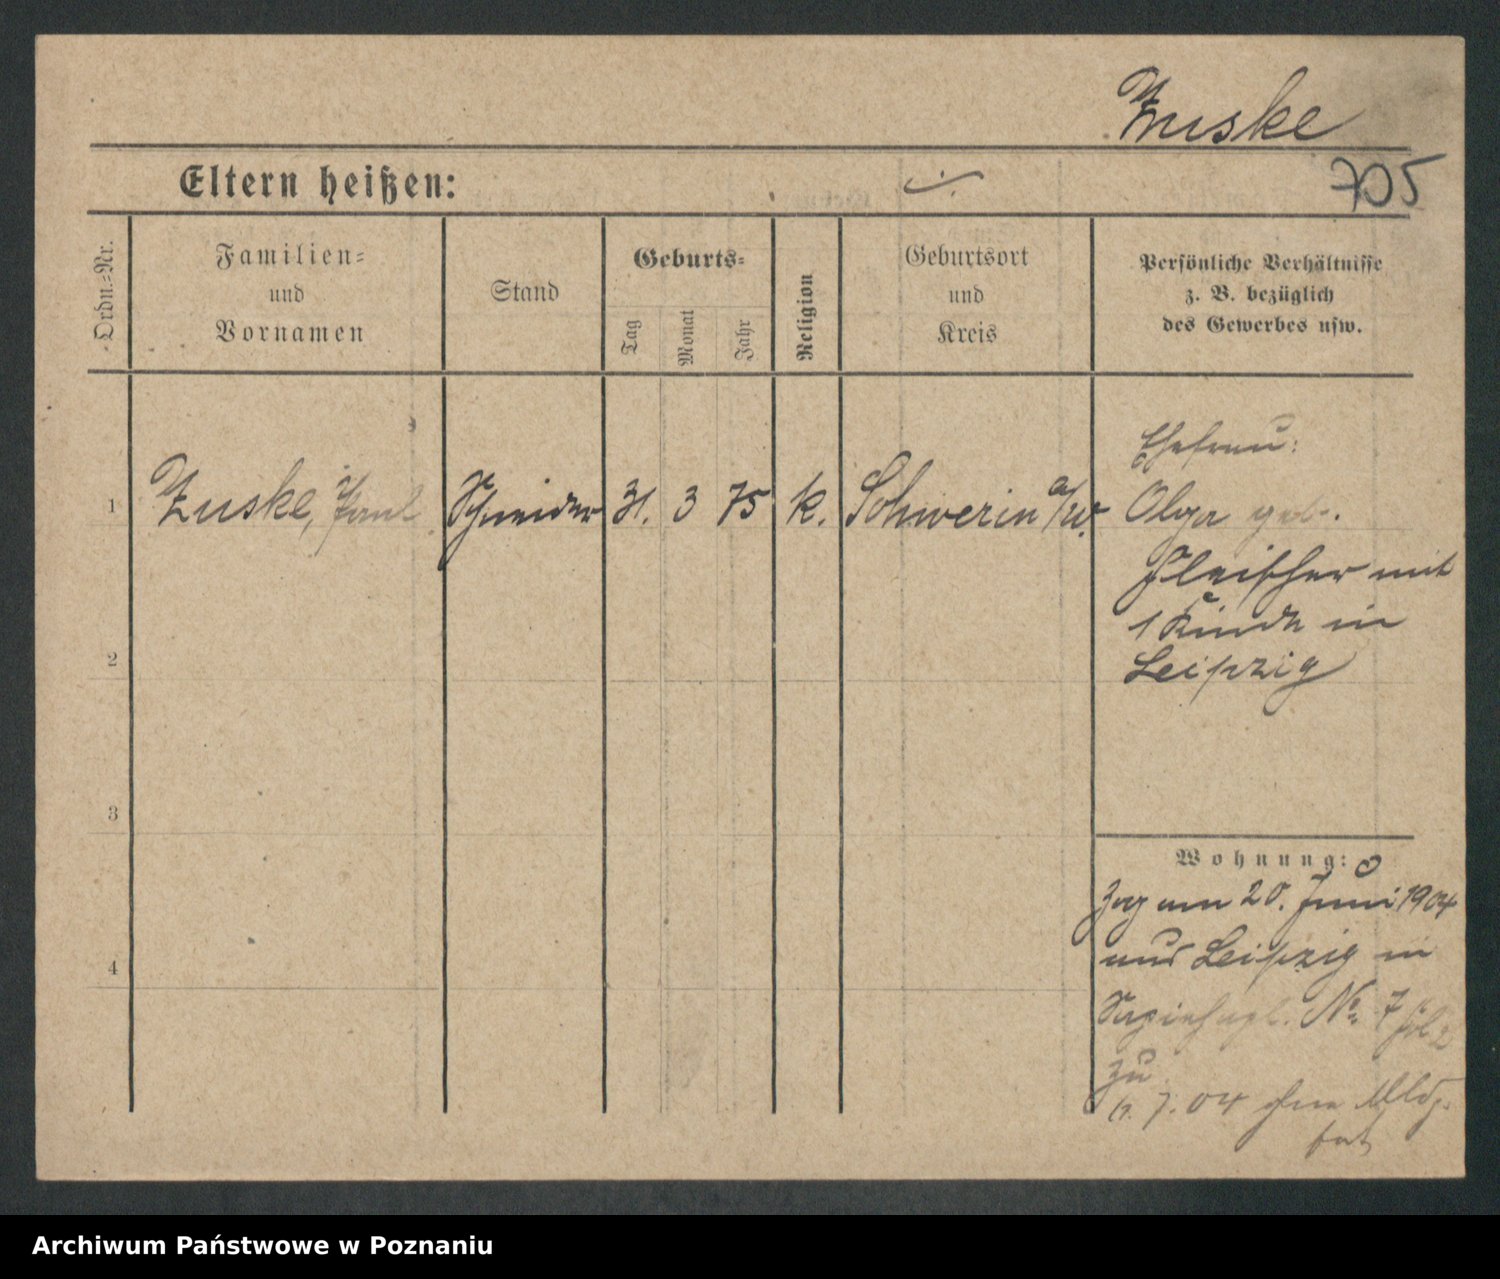 Zuske
705
Eltern heißen: ./.
Ordn.=Nr.
Familien=
und
Vornamen
Stand
Geburts=
Tag
Monat
Jahr
Religion
Geburtsort
und
Kreis
Persönliche Verhältnisse
z. B. bezüglich
des Gewerbes usw.
1 Zuske, Paul Schneider 31. 3 75 k. Schwerin a/W.
Ehefrau:
Olga geb.
Fleischer mit
1 Kinde in
Leipzig
2
3
4
Wohnung:
Zog am 20. Juni 1904
aus Leipzig in
No 7
zu
7. 04 ohne
fort
Archiwum Państwowe w Poznaniu